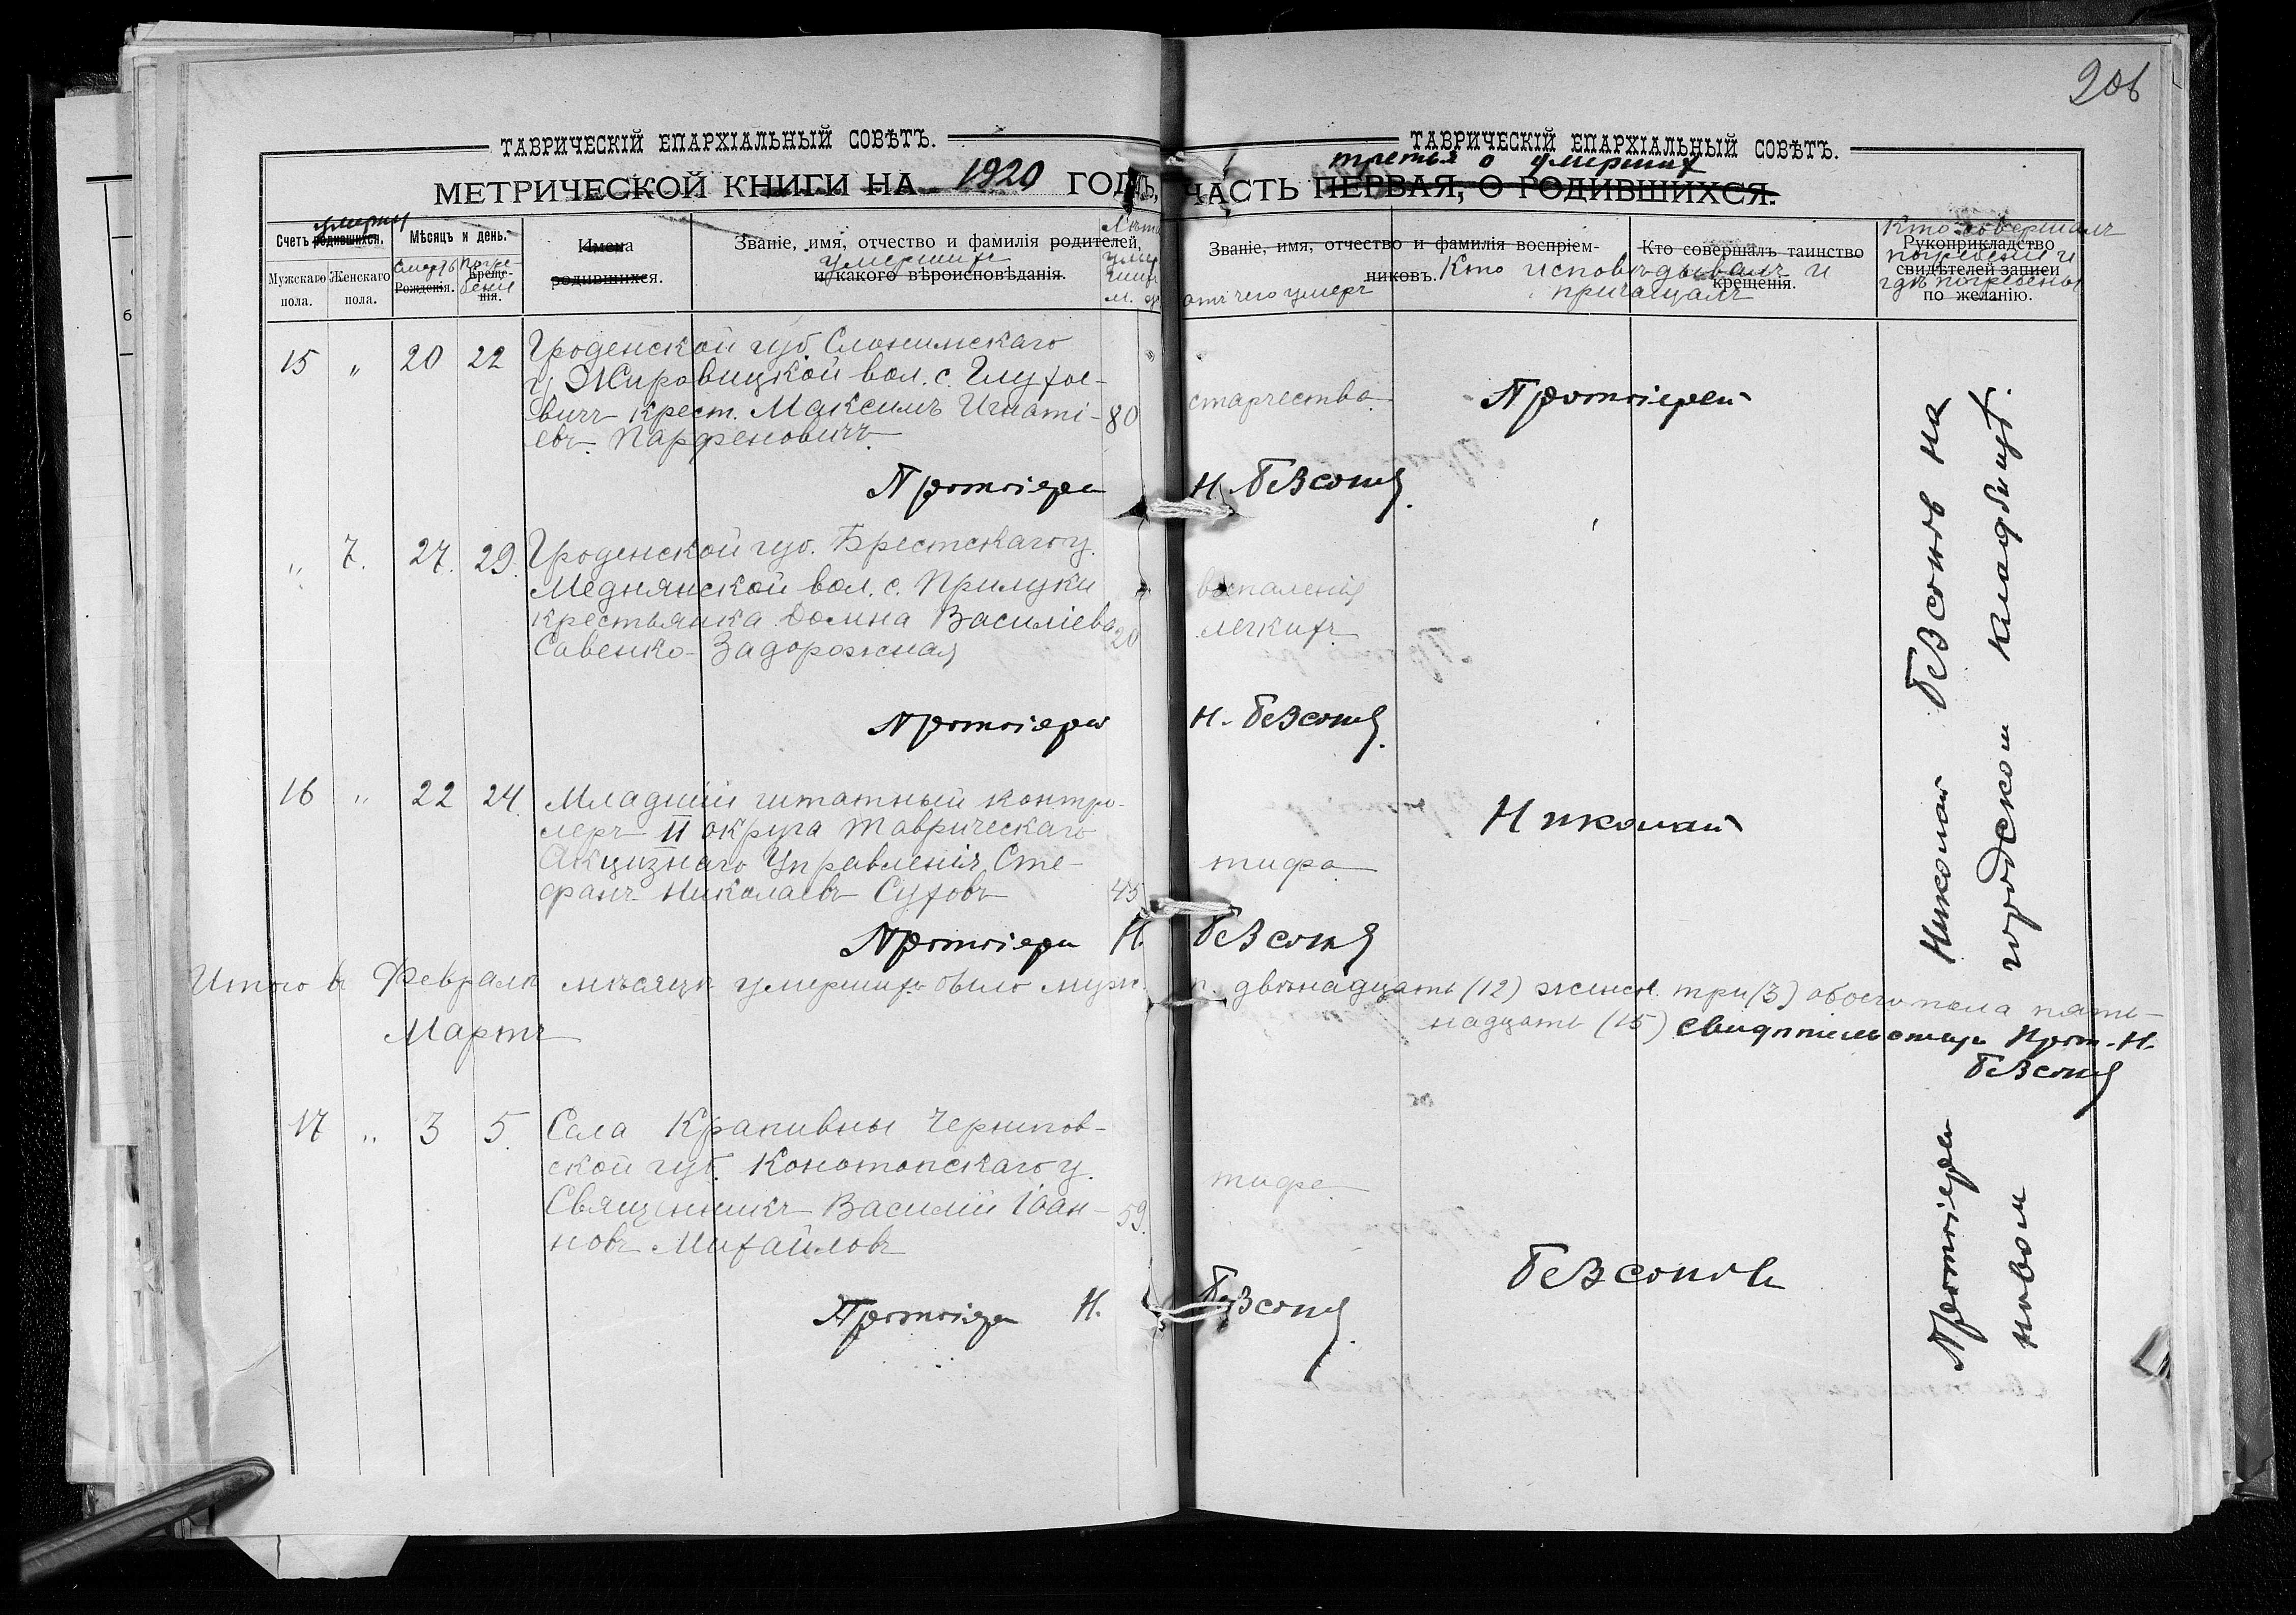 206
ТАВРИЧЕСКІЙ ЕПАРХІАЛЬНЫЙ СОВѢТЪ.
МЕТРИЧЕСКОЙ КНИГИ НА 1920 ГОДЪ,
умерших
Счетъ родившихся.
Мѣсяцъ и день.
Имена
родившихся.
Званіе, имя, отчество и фамилія родителей,
умерших
и какого вѣроисповѣданія.
Мужскаго пола.
Женскаго пола.
Смерть
Рожденія.
Погребения
Крещенія.
Лѣта
м.
ТАВРИЧЕСКІЙ ЕПАРХІАЛЬНЫЙ СОВѢТЪ.
третья о умерших
ЧАСТЬ ПЕРВАЯ, О РОДИВШИХСЯ.
Званіе, имя, отчество и фамилія воспріем-
никовъ.
отъ чего умеръ
Кто исповѣдывалъ и
причащалъ
Кто совершалъ таинство
крещенія.
Кто совершалъ
погребеніи и
гдѣ погребены
Рукоприкладство
свидѣтелей записи
по желанію.
15 " 20 22 Гроденской губ. Слонимскаго
у. Жировицкой вол. с. Глухое-
вичъ крест. Максимъ Игнаті- 80 старчества
евъ Парфеновичъ.
Протоіерей Н. Безсоновъ
" 7. 27. 29. Гроденской губ. Брестскаго у.
Меднянской вол. с. Прилуки воспаленія
крестьянка Домна Василіева 20 легкихъ
Савенко-Задорожная
Протоіерей Н. Безсоновъ
16 " 22 24. Младшій штатный контро-
леръ II округа Таврическаго
Акцизнаго Управленія Сте- тифа
фанъ Николаевъ Суховъ 45
Протоіерей Н. Безсоновъ
Итого въ Февралѣ мѣсяцѣ умершихъ было муж. п. двѣнадцать (12) женск. три (3) обоего пола пят-
надцать (15) свидѣтельствую Прот. Н.
Безсоновъ
Мартъ
17 " 3 5. Села Крапивны Чернигов-
ской губ. Конотопскаго у. тифа
Священникъ Василій Іоан- 59.
новъ Михайловъ
Протоіерей Н. Безсоновъ
Протоіерей
Николай
Безсоновъ
Протоіерей Николай Безсоновъ на
новом городском кладбищѣ.